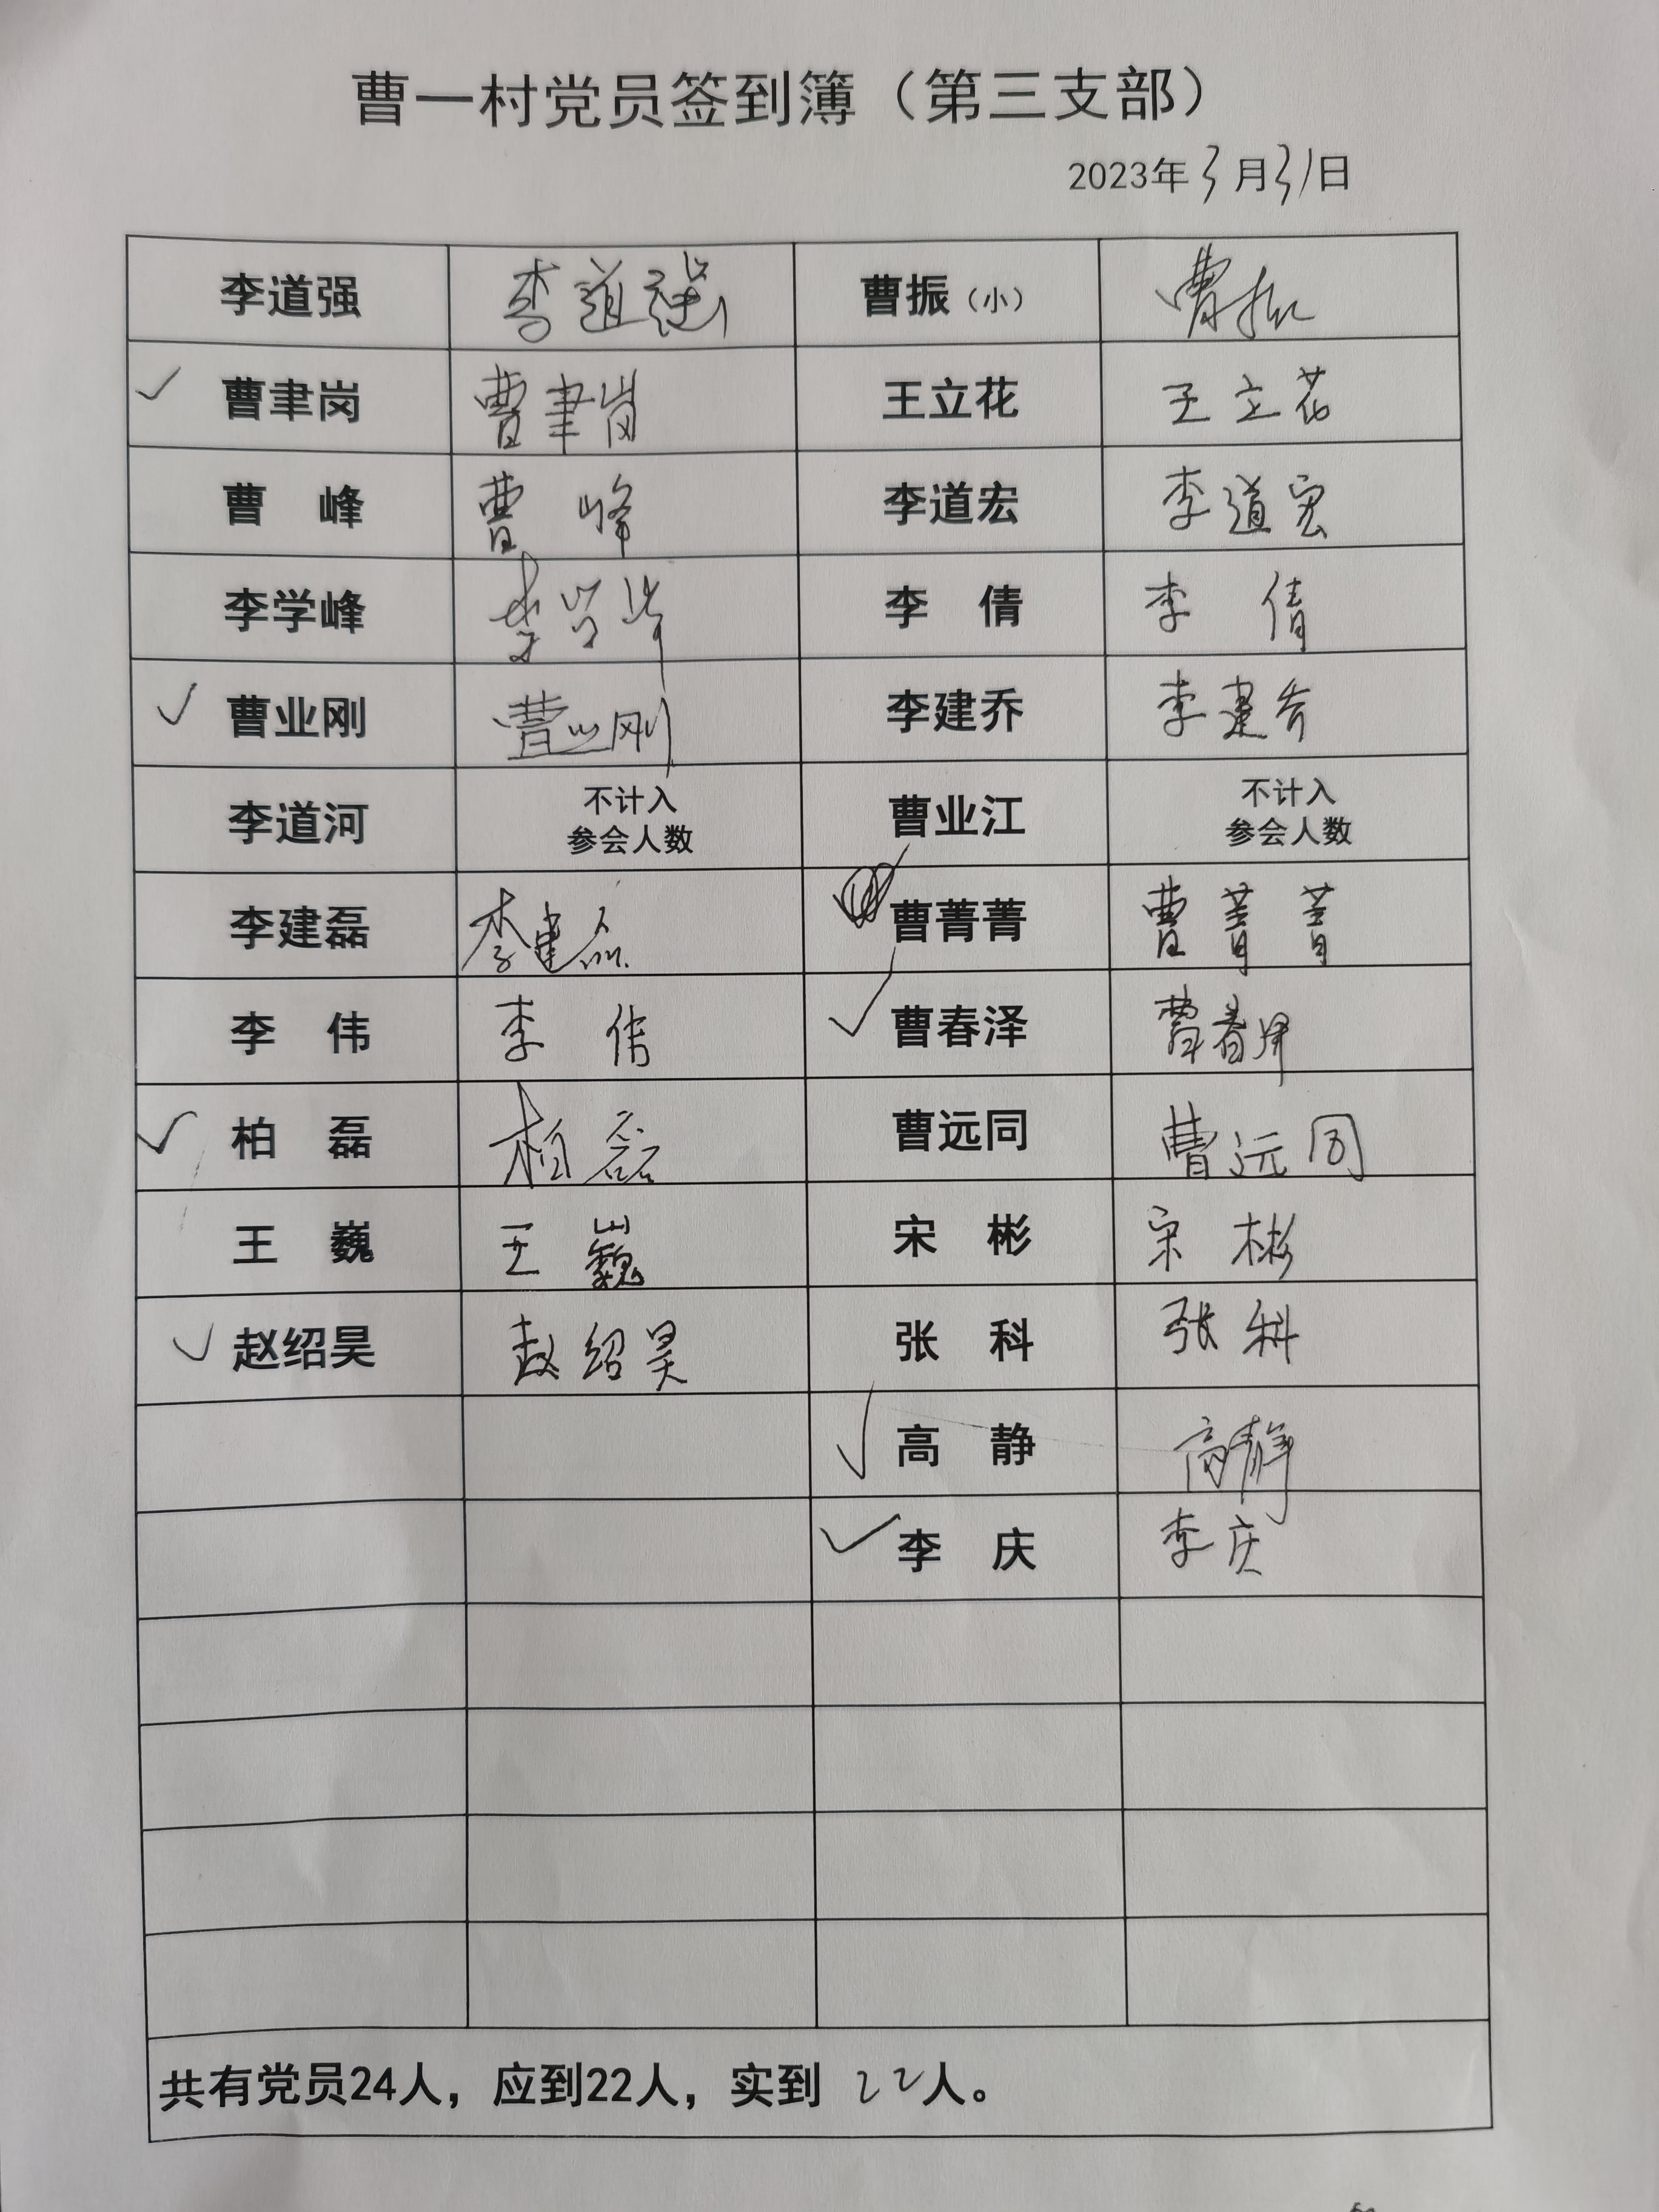 曹一村党员签到簿（第三支部）
2023年3月31日
李道强 李道强 曹振（小） 曹振
曹聿岗 曹聿岗 王立花 王立花
曹 峰 曹 峰 李道宏 李道宏
李学峰 李学峰 李 倩 李 倩
曹业刚 曹业刚 李建乔 李建乔
李道河 不计入 曹业江 不计入
参会人数 参会人数
李建磊 李建磊 曹菁菁 曹菁菁
李 伟 李 伟 曹春泽 曹春泽
柏 磊 柏磊 曹远同 曹远同
王 巍 王 巍 宋 彬 宋 彬
赵绍昊 赵绍昊 张 科 张科
高 静 高静
李 庆 李庆
共有党员24人，应到22人，实到 22人。